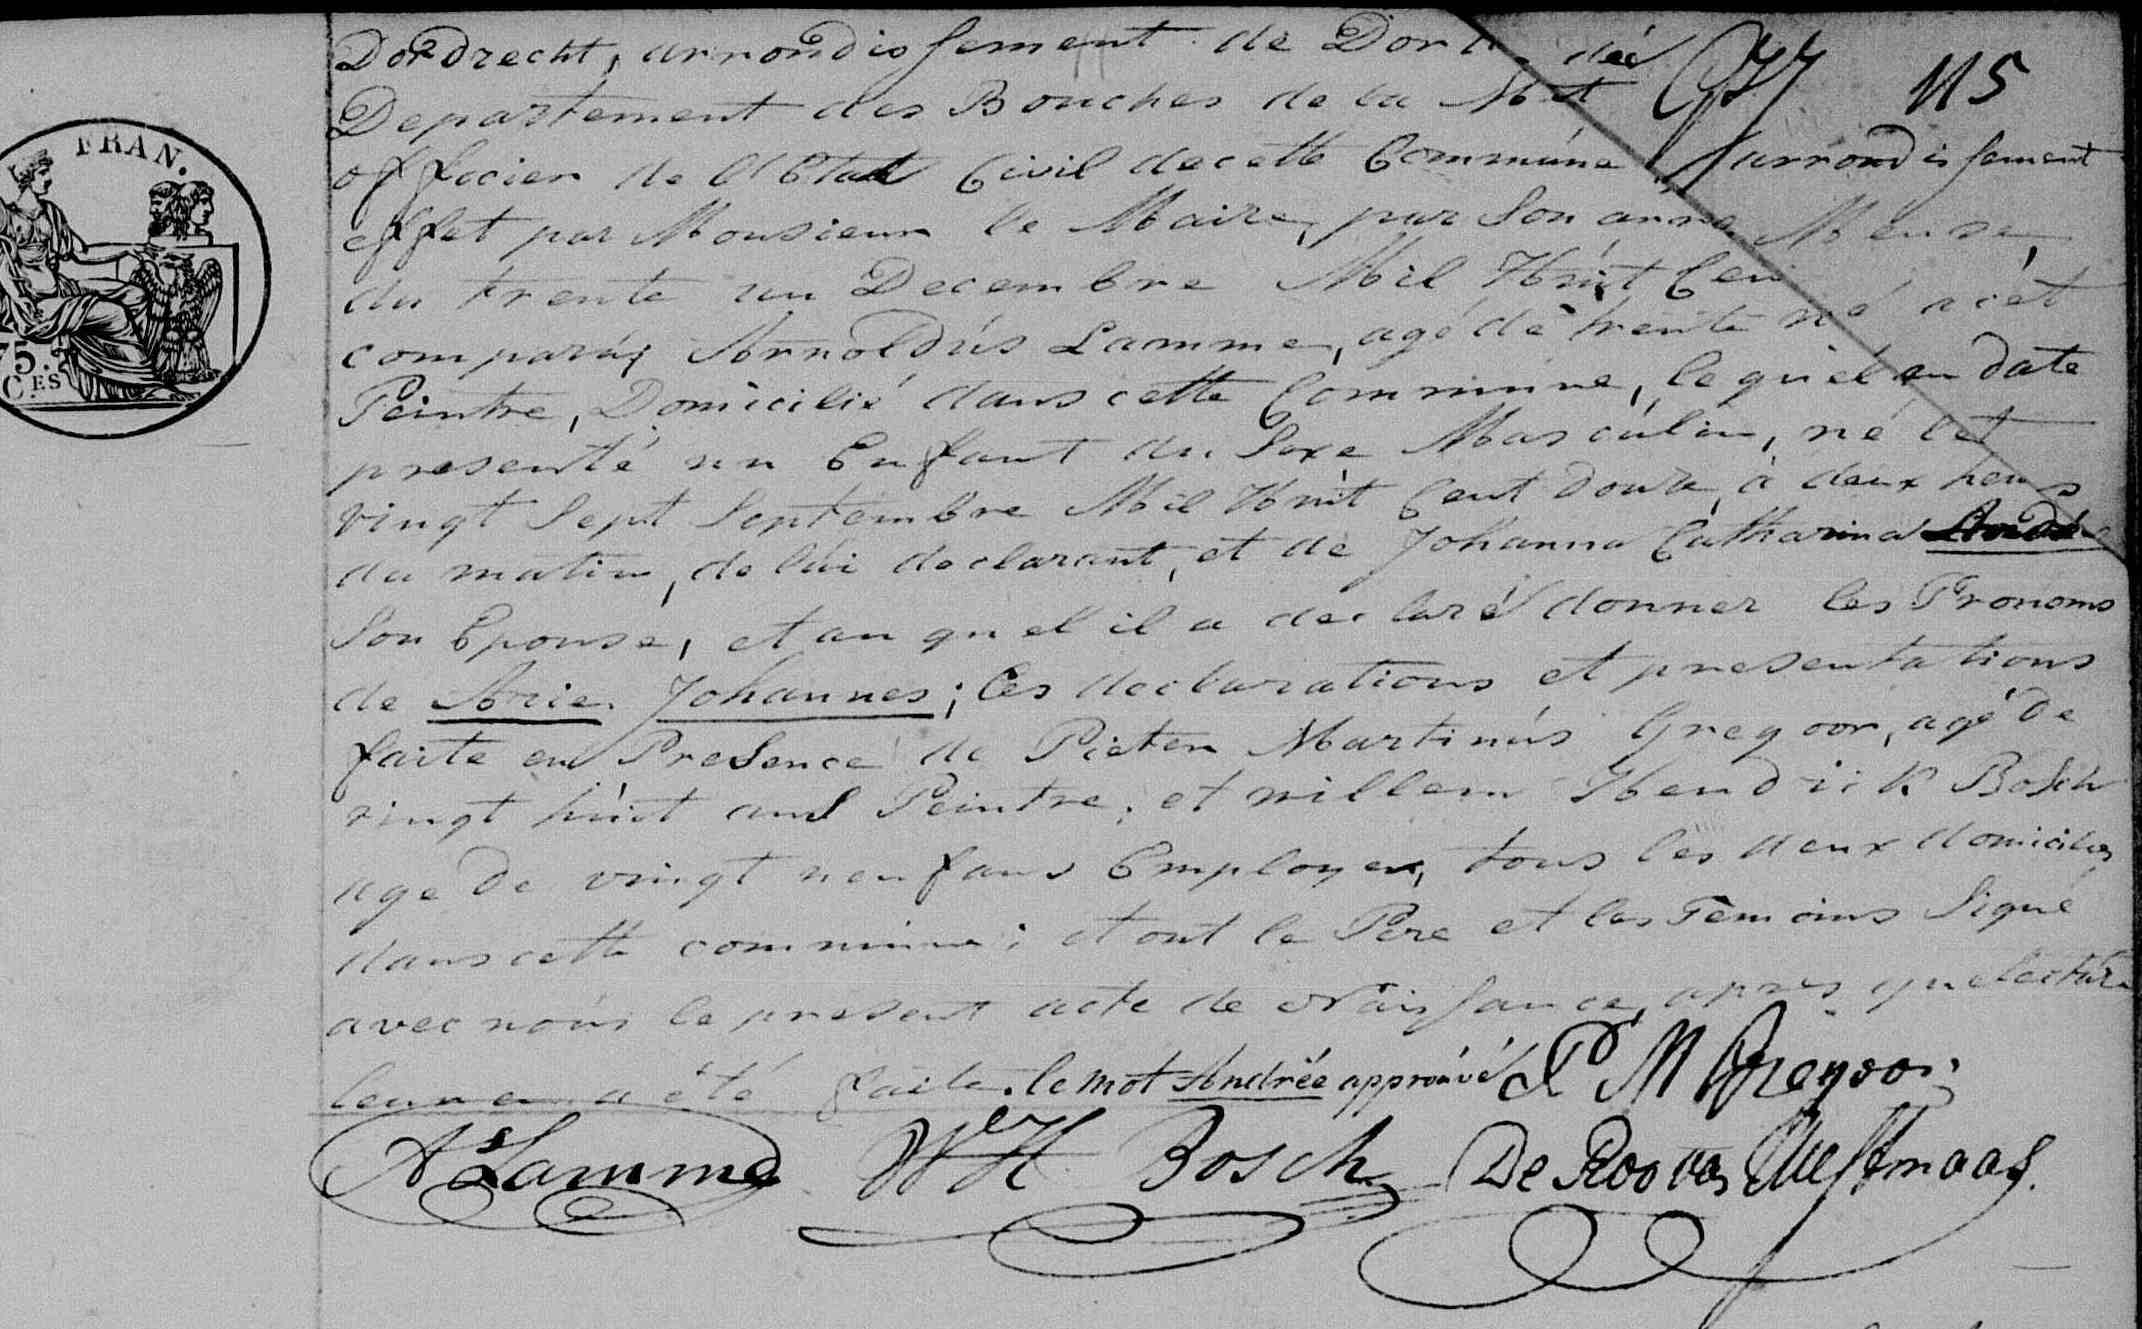 FRAN.
75.
C.ES
115
Dordrecht, arrondissement de Dord
Departement des Bouches de la M
officier de l'Etat Civil de cette Commune arrondissement
effet par Monsieur le Maire, par Son arre Meuse
du trente un Decembre Mil Huit Cen
comparú Arnoldús Lamme, agé de trente
Peintre, Domicilié dans cette Commune, le quel en date
presenté un Enfant du Sexe Masculin, né let
vingt Sept Septembre Mil Huit Cent Douze, à deux heurs
du matin, de lúi declarant, et de Johanna Catharina Andrée
Son Epouse, et au quel il a declaré donner les Pronoms
de Arie Johannes; Ces declarations et presentations
faite en Presence de Pieter Martinús Gregoor, agé de
vingt húit ans Peintre, et willem Hendrik Bosch
age de vingt neuf ans Employer, tous les deux domicilies
dans cette commune; et ont le Pere et les Temoins Signé
avec noús le present acte de Naissance, apres que lecture
leur en a été faite. le mot Andrée approuvé P M Gregoor
As Lamme Wm H Bosch De Roo van Westmaas